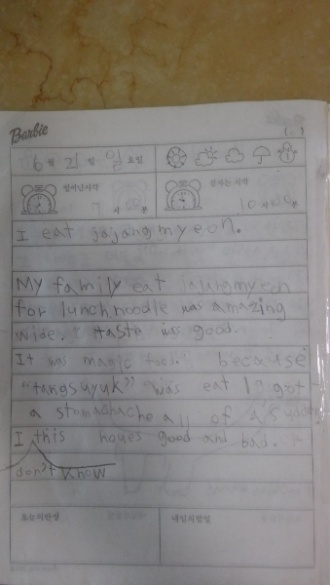 Barbie
6월 21일 일요일
일어난시각
잠자는 시각
7시 00분
10시 00분
I eat jajangmyeon.
My family eat jajungmyeon
for lunch. noodle was amazing
wide. I taste was good.
It was magic food! because
"tangsuyuk" was eat I got
a stomachache all of a sudde
I this houes good and bad.
don't know
오늘의반성
내일의할일